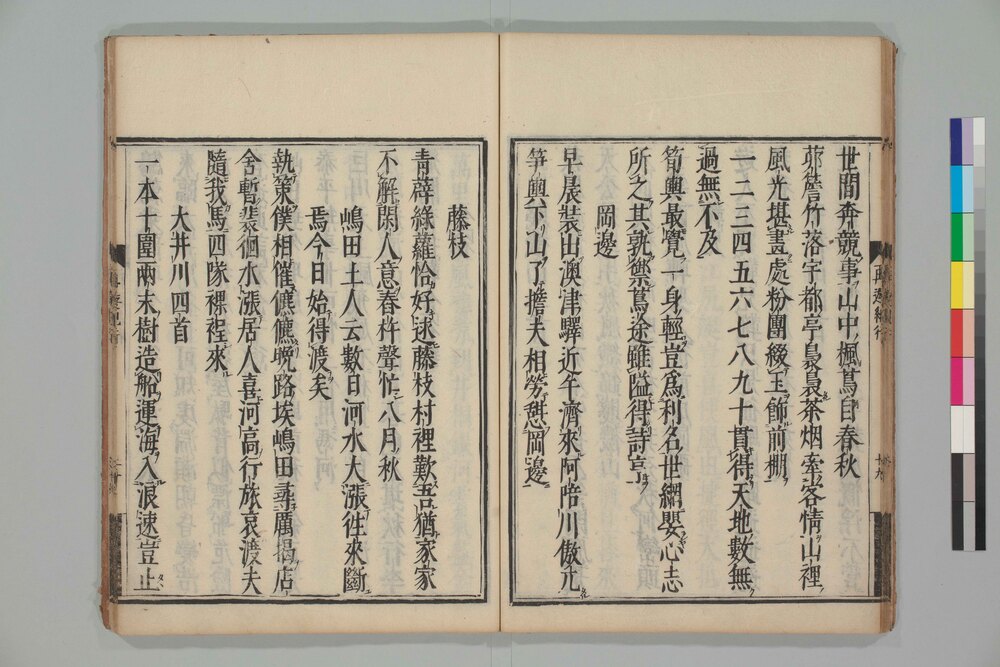 世間奔競事山中楓蔦自春秋
茆簷竹落宇都亭裊裊茶烟牽客情山裡
風光堪畫處粉團綴玉飾前棚
一二三四五六七八九十貫得天地數無
過無不及
筍輿最覺一身輕豈爲利名世網嬰心志
所之其孰禦蔦途雖隘得詩亨
岡邊
早晨裝出澳津驛近午濟來阿陪川傲兀
笋輿下山了擔夫相勞憇岡邊
藤枝
青薜綠蘿恰好逑藤枝村裡歎吾猶家家
不解閑人意舂杵聲忙八月秋
嶋田土人云數日河水大漲徃來斷
焉今日始得渡矣
執策僕相催儦儦晩路埃嶋田尋厲揭店
舍暫裴徊水漲居人喜河高行旅哀渡夫
隨我馬四隊裸裎來
大井川四首
一本十圍兩末樹造船運海入浪速豈止